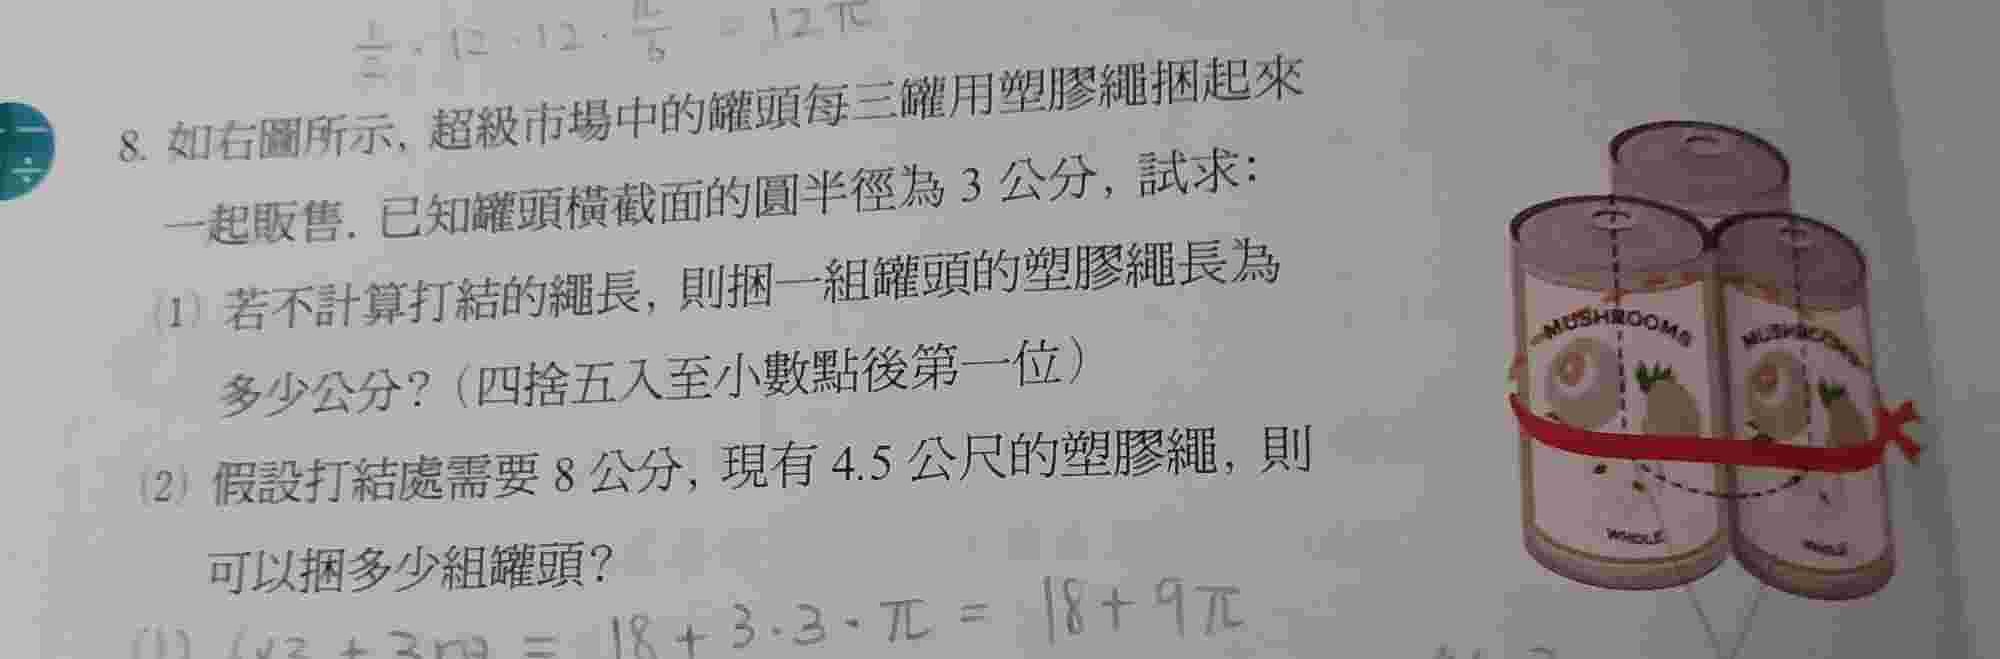 1/2 · 12 · 12 · π/6 = 12π
8. 如右圖所示, 超級市場中的罐頭每三罐用塑膠繩捆起來
一起販售. 已知罐頭橫截面的圓半徑為 3 公分, 試求:
(1) 若不計算打結的繩長, 則捆一組罐頭的塑膠繩長為
多少公分? (四捨五入至小數點後第一位)
(2) 假設打結處需要 8 公分, 現有 4.5 公尺的塑膠繩, 則
可以捆多少組罐頭?
MUSHROOMS
MUSHROOMS
WHOLE
WHOLE
= 18 + 3·3·π = 18 + 9π